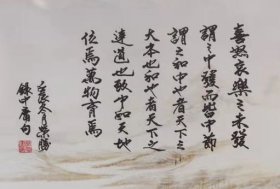 喜怒哀樂之未發
謂之中發而皆中節
謂之和中也者天下之
大本也和也者天下之
達道也致中和天地
位焉萬物育焉
辰冬月榮勝
錄中庸句